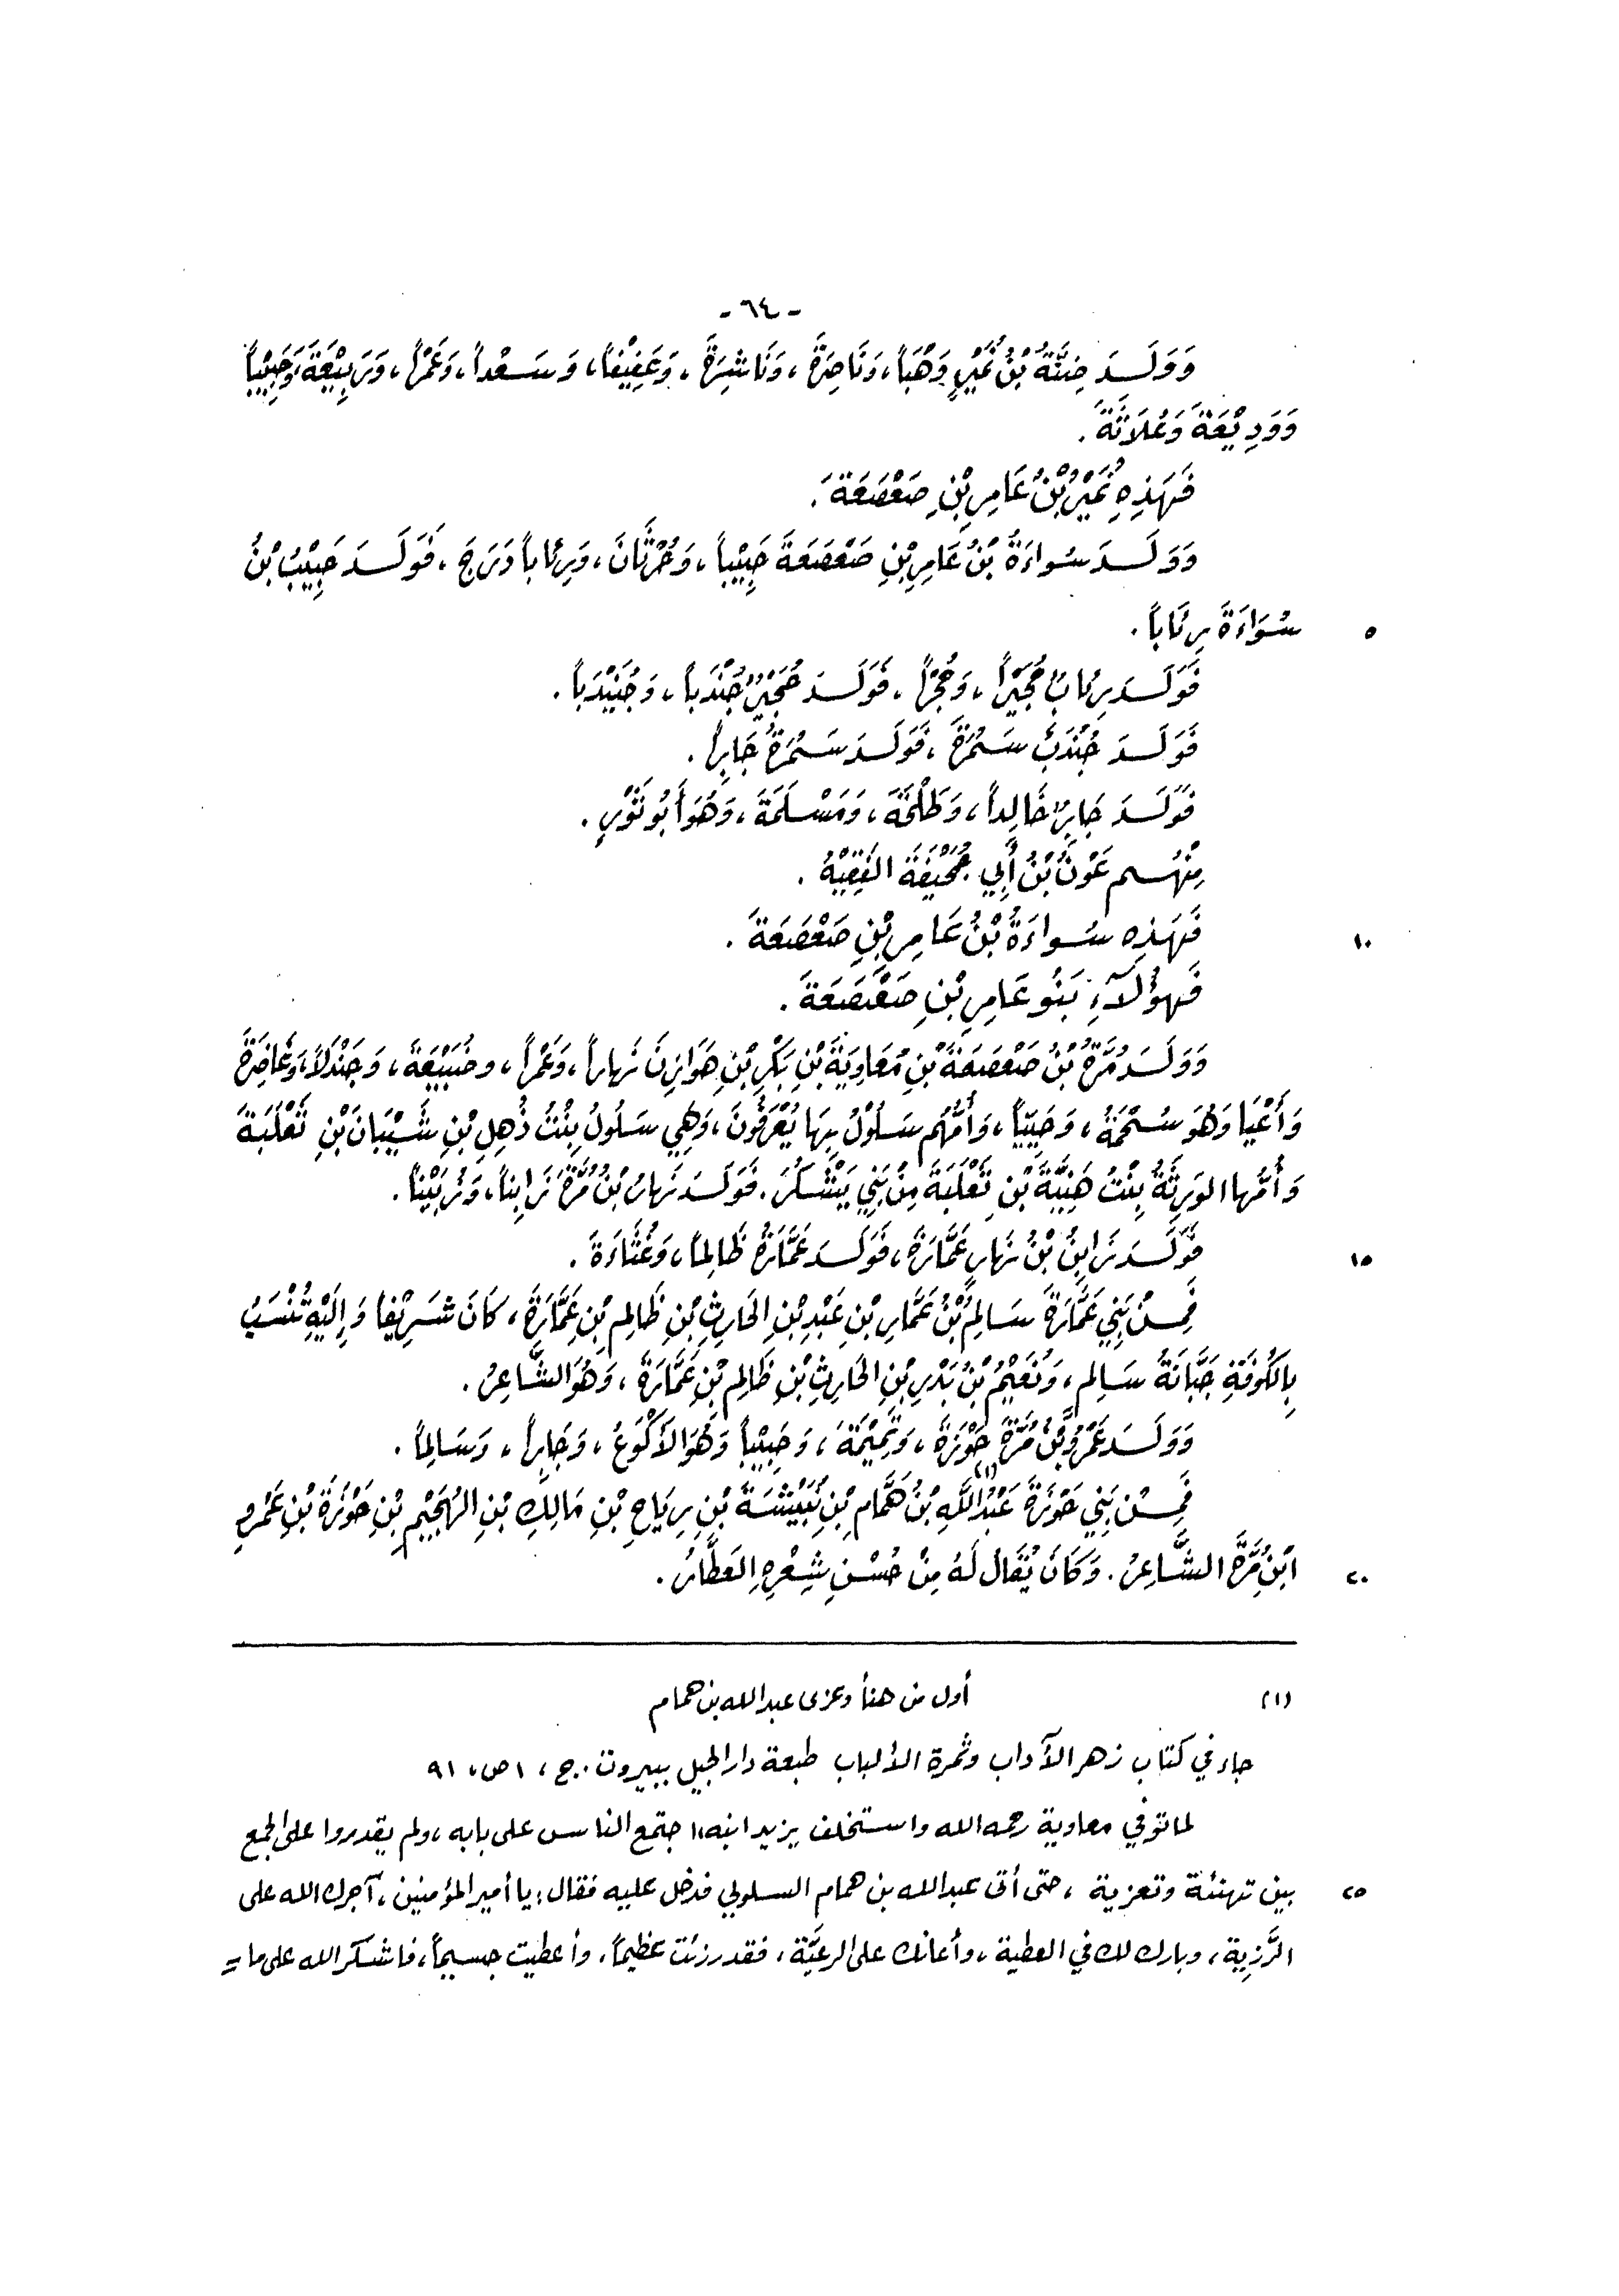 - ٦٤ -
وَوَلَدَ ضِنَّةُ بْنُ نُمَيْرٍ وَهْبَاً، وَنَاصِرَةَ، وَنَاشِرَةَ، وَعَفِيْفاً، وَسَعْداً، وَعَمْراً، وَرَبِيْعَةَ، وَحَبِيْبَاً
وَوَدِيْعَةَ وَعُلَاثَةَ.
فَهَذِهِ نُمَيْرُ بْنُ عَامِرِ بْنِ صَعْصَعَةَ.
وَوَلَدَ سُواءَةُ بْنُ عَامِرِ بْنِ صَعْصَعَةَ حَبِيْباً، وَحُرْثَانَ، وَرِئاباً دَرَجَ، فَوَلَدَ حَبِيْبُ بْنُ
٥ سُوَاءَةَ رِئَاباً.
فَوَلَدَ رِئابُ حُجَيْراً، وَحُجْراً، فَوَلَدَ حُجَيْرُ جُنْدَباً، وَجُنَيْدَباً.
فَوَلَدَ جُنْدَبُ سَمُرَةَ، فَوَلَدَ سَمُرَةُ جَابِراً.
فَوَلَدَ جَابِرُ خَالِداً، وَطَلْحَةَ، وَمَسْلَمَةَ، وَهُوَ أَبُو ثَوْرٍ.
مِنْهُم عَوْنُ بْنُ أَبِي جُحَيْفَةَ الفَقِيْهُ.
١٠ فَهَذِهِ سُواءَةُ بْنُ عَامِرِ بْنِ صَعْصَعَةَ.
فَهؤُلَآءِ بَنُو عَامِرِ بْنِ صَعْصَعَةَ.
وَوَلَدَ مُرَّةُ بْنُ صَعْصَعَةَ بْنِ مُعَاوِيَةَ بْنِ بَكْرِ بْنِ هَوَازِنَ نَهاراً، وَعَمْراً، وضُبَيْعَةَ، وَجَنْدَلاً، وَغَاضِرَةَ
وَأَعْيَا وَهُوَ سُحْمَةُ، وَحَيِيّاً، وَأُمُّهُم سَلُوْلُ بِهَا يُعْرَفُونَ، وَهِي سَلُولُ بِنْتُ ذُهِلِ بْنِ شَيْبَانَ بْنِ ثَعْلَبَةَ
وَأُمُّها الوَرِثَةُ بِنْتُ هَنِيَّةَ بْنِ ثَعْلَبَةَ مِنْ بَنِي يَشْكُرَ. فَوَلَدَ نَهارُ بْنُ مُرَّةَ زَابِناً، وَزُبَيْناً.
١٥ فَوَلَدَ زَابِنُ بْنُ نَهارٍ عَمَّارَةَ، فَوَلَدَ عَمَّارَةُ ظَالِماً، وَغُثَاءَةَ.
فَمِنْ بَنِي عَمَّارَةَ سَالِمُ بْنُ عَمَّارِ بْنِ عَبْدِ بْنِ الحَارِثِ بْنِ ظَالِمِ بْنِ عَمَّارَةَ، كَانَ شَرِيْفاً وَإِلَيْهِ تُنْسَبُ
بِالكُوفَةِ جَبَّانَةُ سَالِمٍ، وَنُعَيْمُ بْنُ بَدْرِ بْنِ الحَارِثِ بْنِ ظَالِمِ بْنِ عَمَّارَةَ، وَهُوَ الشَّاعِرُ.
وَوَلَدَ عَمْرُو بْنُ مُرَّةَ حَوْزَةَ، وَتَمِيْمَةَ، وَحَبِيْباً وَهُوَ الأَكْوَعُ، وَجَابِراً، وَسَالِماً.
فَمِنْ بَنِي حَوْزَةَ عَبْدُ اللَّهِ (١) بْنُ هَمَّامِ بْنِ نُبَيْشَةَ بْنِ رِيَاحِ بْنِ مَالِكِ بْنِ الهُجَيْمِ بْنِ حَوْزَةَ بْنِ عَمْرِو
٢٠ ابْنِ مُرَّةَ الشَّاعِرُ. وَكَانَ يُقَالُ لَهُ مِنْ حُسْنِ شِعْرِهِ العَطَّارُ.
(١) أول من هنأ وعزى عبدالله بن همام
جاء في كتاب زهر الآداب وثمرة الألباب طبعة دار الجيل ببيروت. ج، ١ ص، ٩١
لما توفي معاوية رحمه الله واستخلف يزيد ابنه، اجتمع الناس على بابه، ولم يقدروا على الجمع
٢٥ بين تهنئة وتعزية، حتى أتى عبدالله بن همام السلولي فدخل عليه فقال: يا أمير المؤمنين، آجرك الله على
الرَّزِية، وبارك لك في العطية، وأعانك على الرعيَّة، فقد رزئت عظيماً، وأعطيت جسيماً، فاشكر الله على ما =